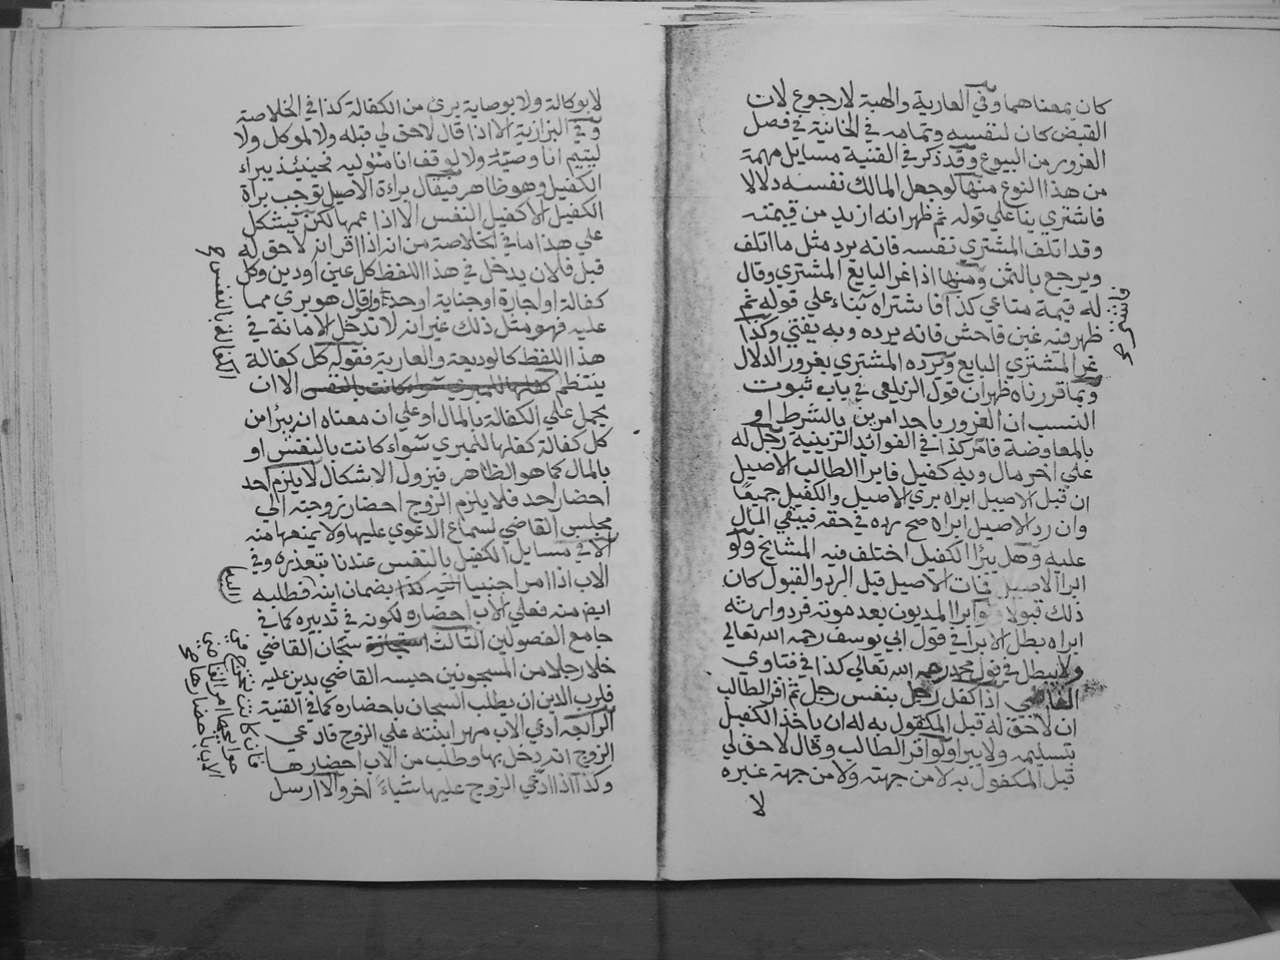 كان بمعناهما وفي العارية والهبة لا رجوع لان
القبض كان لنفسه وتمامه في الخانية في فصل
الغرور من البيوع وقد ذكر في القنية مسايل مهمة
من هذا النوع منها لو جعل المالك نفسه دلالا
فاشتري بنا علي قوله ثم ظهر انه ازيد من قيمته
وقد اتلف المشتري نفسه فانه يرد مثل ما اتلف
ويرجع بالثمن ومنها اذا غر البايع المشتري وقال
له قيمة متاعي كذا فاشتراه بناء علي قوله ثم
ظهر فيه غبن فاحش فانه يرده وبه يفتي وكذا
غر المشتري البايع ويرده المشتري بغرور الدلال
وبما قررناه ظهر ان قول الزيلعي في باب ثبوت
النسب ان الغرور باحد امرين بالشرط او
بالمعاوضة قاصر كذا في الفوائد الزينية رجل له
علي اخر مال وبه كفيل فابرا الطالب الاصيل
ان قبل الاصيل ابراه بري الاصيل والكفيل جميعا
وان رد الاصيل ابراه صح رده في حقه فيبقي المال
عليه وهل يبرا الكفيل اختلف فيه المشايخ ولو
ابرا الاصيل فمات الاصيل قبل الرد والقبول كان
ذلك قبولا ولو ابرا المديون بعد موته فرد وارثه
ابراه بطل الابرا في قول ابي يوسف رحمه الله تعالي
ولا يبطل في قول محمد رحمه الله تعالي كذا في فتاوي
اذا كفل رجل بنفس رجل ثم اقر الطالب
ان لا حق له قبل المكفول به له ان ياخذ الكفيل
بتسليمه ولا يبرا ولو اقر الطالب وقال لا حق لي
قبل المكفول به لا من جهته ولا من جهة غيره
لا
فاشتري صح
لا بوكالة ولا بوصاية بري من الكفالة كذا في الخلاصة
وفي البزازية الا اذا قال لا حق لي قبله ولا لموكل ولا
ليتيم انا وصيه ولا لوقف انا متوليه فحينئذ يبراء
الكفيل وهو ظاهر فيقال براءة الاصيل توجب براة
الكفيل الا كفيل النفس الا اذا عمها لكن يشكل
علي هذا ما في الخلاصة من انه اذا اقر انه لا حق له
قبل فلان يدخل في هذا اللفظ كل عين او دين وكل
كفالة او اجارة او جناية او حد ولو قال هو بري مما
عليه فهو مثل ذلك غير انه لا تدخل الامانة في
هذا اللفظ كالوديعة والعارية فقوله كل كفالة
ينتظم الا ان
يحمل علي الكفالة بالمال او علي ان معناه انه يبرا من
كل كفالة كفلها للمبري سواء كانت بالنفس او
بالمال كما هو الظاهر فيزول الاشكال لا يلزم احد
احضار احد فلا يلزم الزوج احضار زوجته الي
مجلس القاضي لسماع الدعوي عليها ولا يمنعها منه
الا في مسايل الكفيل بالنفس عندنا وفي
الاب اذا امر اجنبيا بضمان ابنه فطلبه
منه فعلي الاب احضاره لكونه في تدبيره كما في
جامع الفصولين الثالث سجان القاضي
خلا رجلا من المسجونين حبسه القاضي بدين عليه
فلرب الدين ان يطلب السجان باحضاره كما في القنية
الرابعة ادعي الاب مهر ابنته علي الزوج فادعي
الزوج انه دخل بها وطلب من الاب احضارها
وكذا اذا ادعي الزوج عليها شياء اخر والا ارسل
الكفالة بالنفس صح
فان كانت تخرج في
حوايجها امر القاضي
الاب باحضارها صح